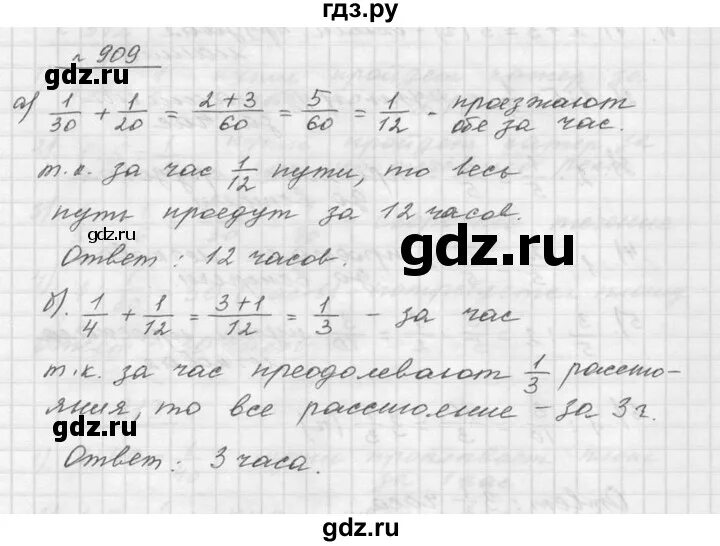 гдз.ру
№ 909
gdz.ru
а) 1/30 + 1/20 = 2+3/60 = 5/60 = 1/12 - проезжают
обе за час.
т.к. за час 1/12 пути, то весь
путь проедут за 12 часов.
gdz.ru
gdz.ru
Ответ: 12 часов.
б). 1/4 + 1/12 = 3+1/12 = 1/3 - за час
т.к. за час преодолевают 1/3 рассто-
яния, то все расстояние - за 3 г.
gdz.ru
Ответ: 3 часа.
gdz.ru